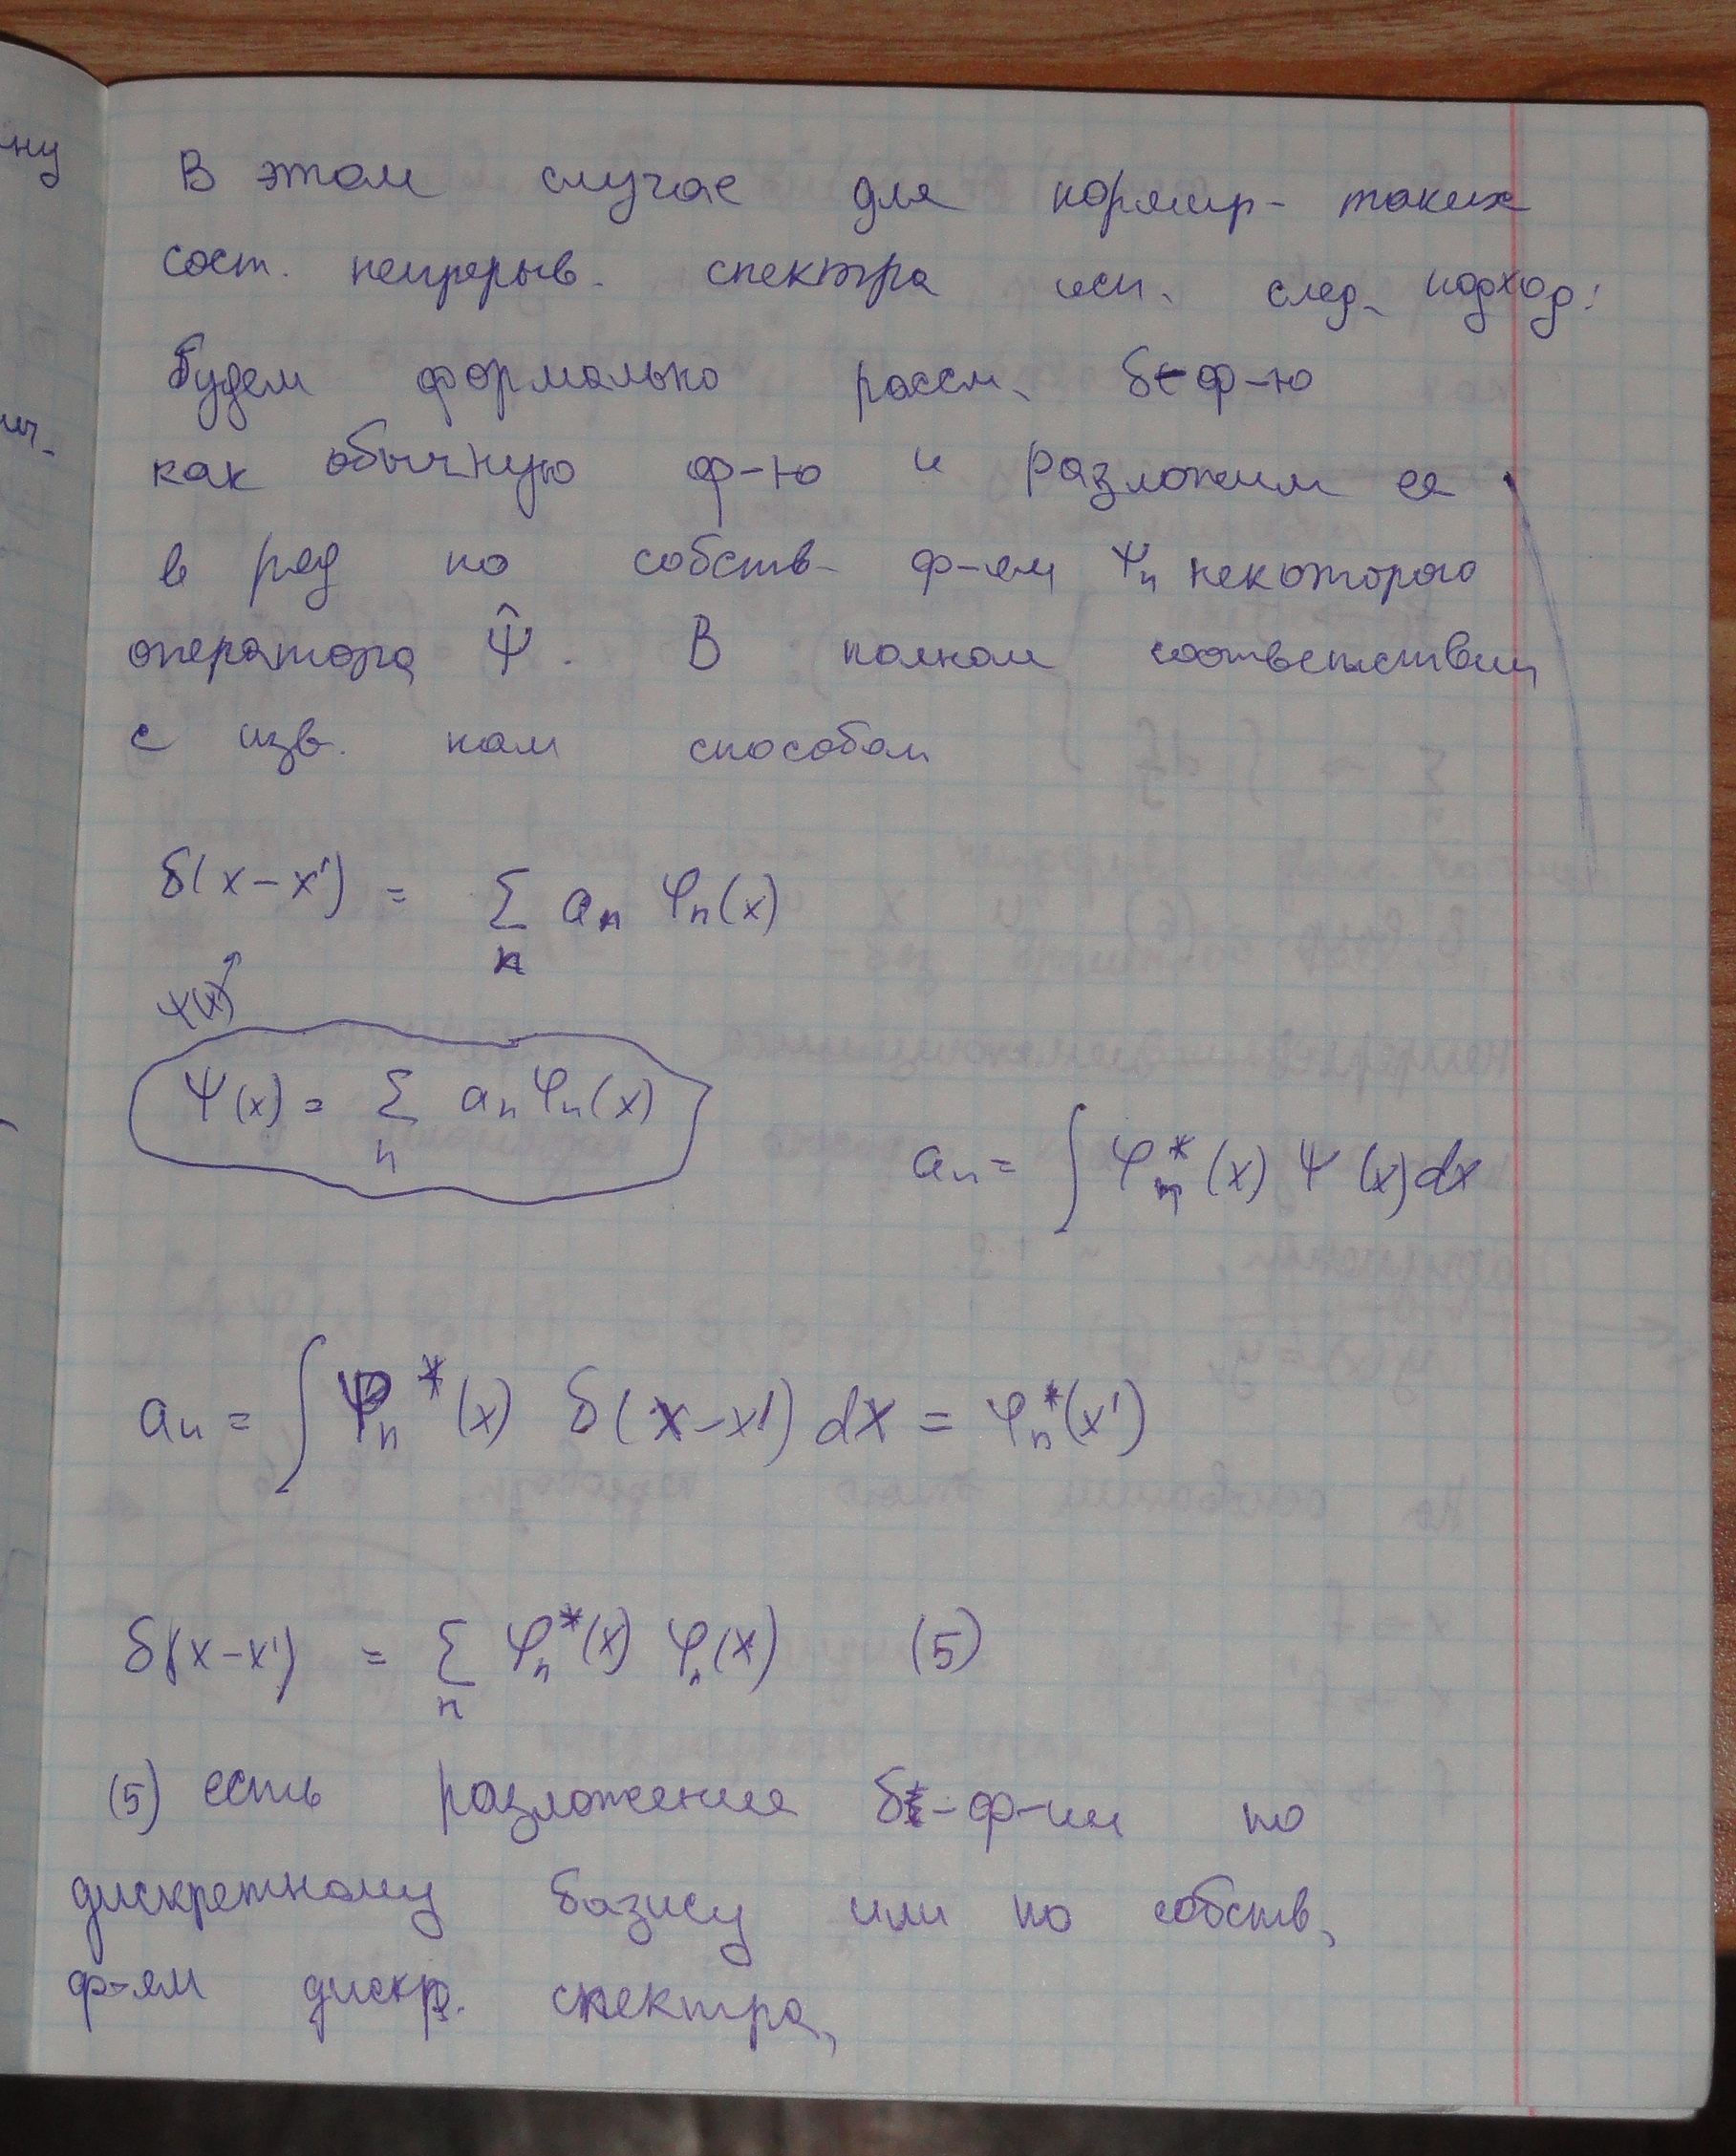 В этом случае для нормир- таких
сост. непрерыв. спектра исп. след. подход:
будем формально рассм. δ-ф-ю
как обычную ф-ю и разложим ее
в ряд по собств- ф-ям Ψn некоторого
оператора Ψ̂. В полном соответствии
с изв. нам способом
δ(x-x') = Σn an φn(x)
Ψ(x)
Ψ(x) = Σn an φn(x)
an = ∫ φn*(x) Ψ(x) dx
an = ∫ φn*(x) δ(x-x') dx = φn*(x')
δ(x-x') = Σn φn*(x) φn(x) (5)
(5) есть разложение δ-ф-ии по
дискретному базису или по собств,
ф-ям дискр. спектра,